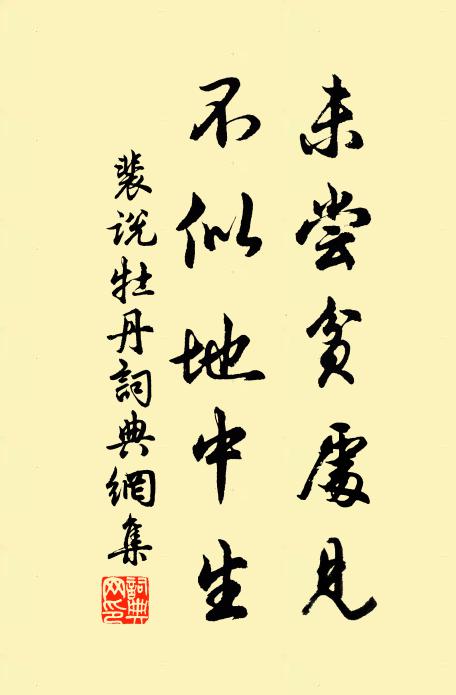 未尝贫處見
不似地中生
裴说牡丹詞典網集
詞典网印